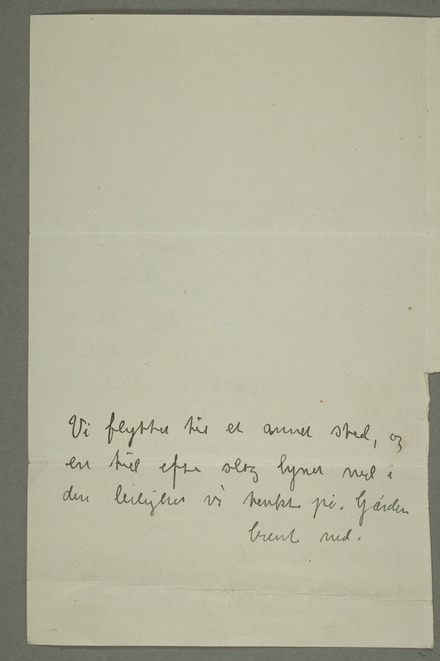 Vi flyttet til et annet sted, og
en tid efter slog lynet ned i
den leilighet vi tenkte på. Gården
brent ned.